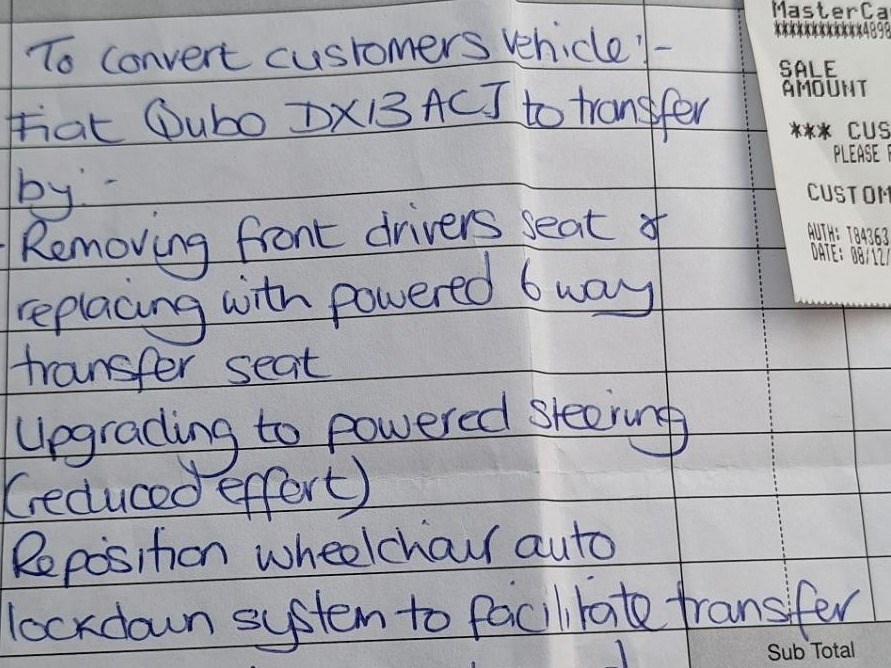 To convert customers vehicle:-
Fiat Qubo DX13 ACJ to transfer
by:-
- Removing front drivers seat &
replacing with powered 6 way
transfer seat
Upgrading to powered steering
(reduced effort)
Reposition wheelchair auto
lockdown system to facilitate transfer
Sub Total
MasterCa
************4898
SALE
AMOUNT
*** CUS
PLEASE
CUSTOM
AUTH: T84363
DATE: 08/12/